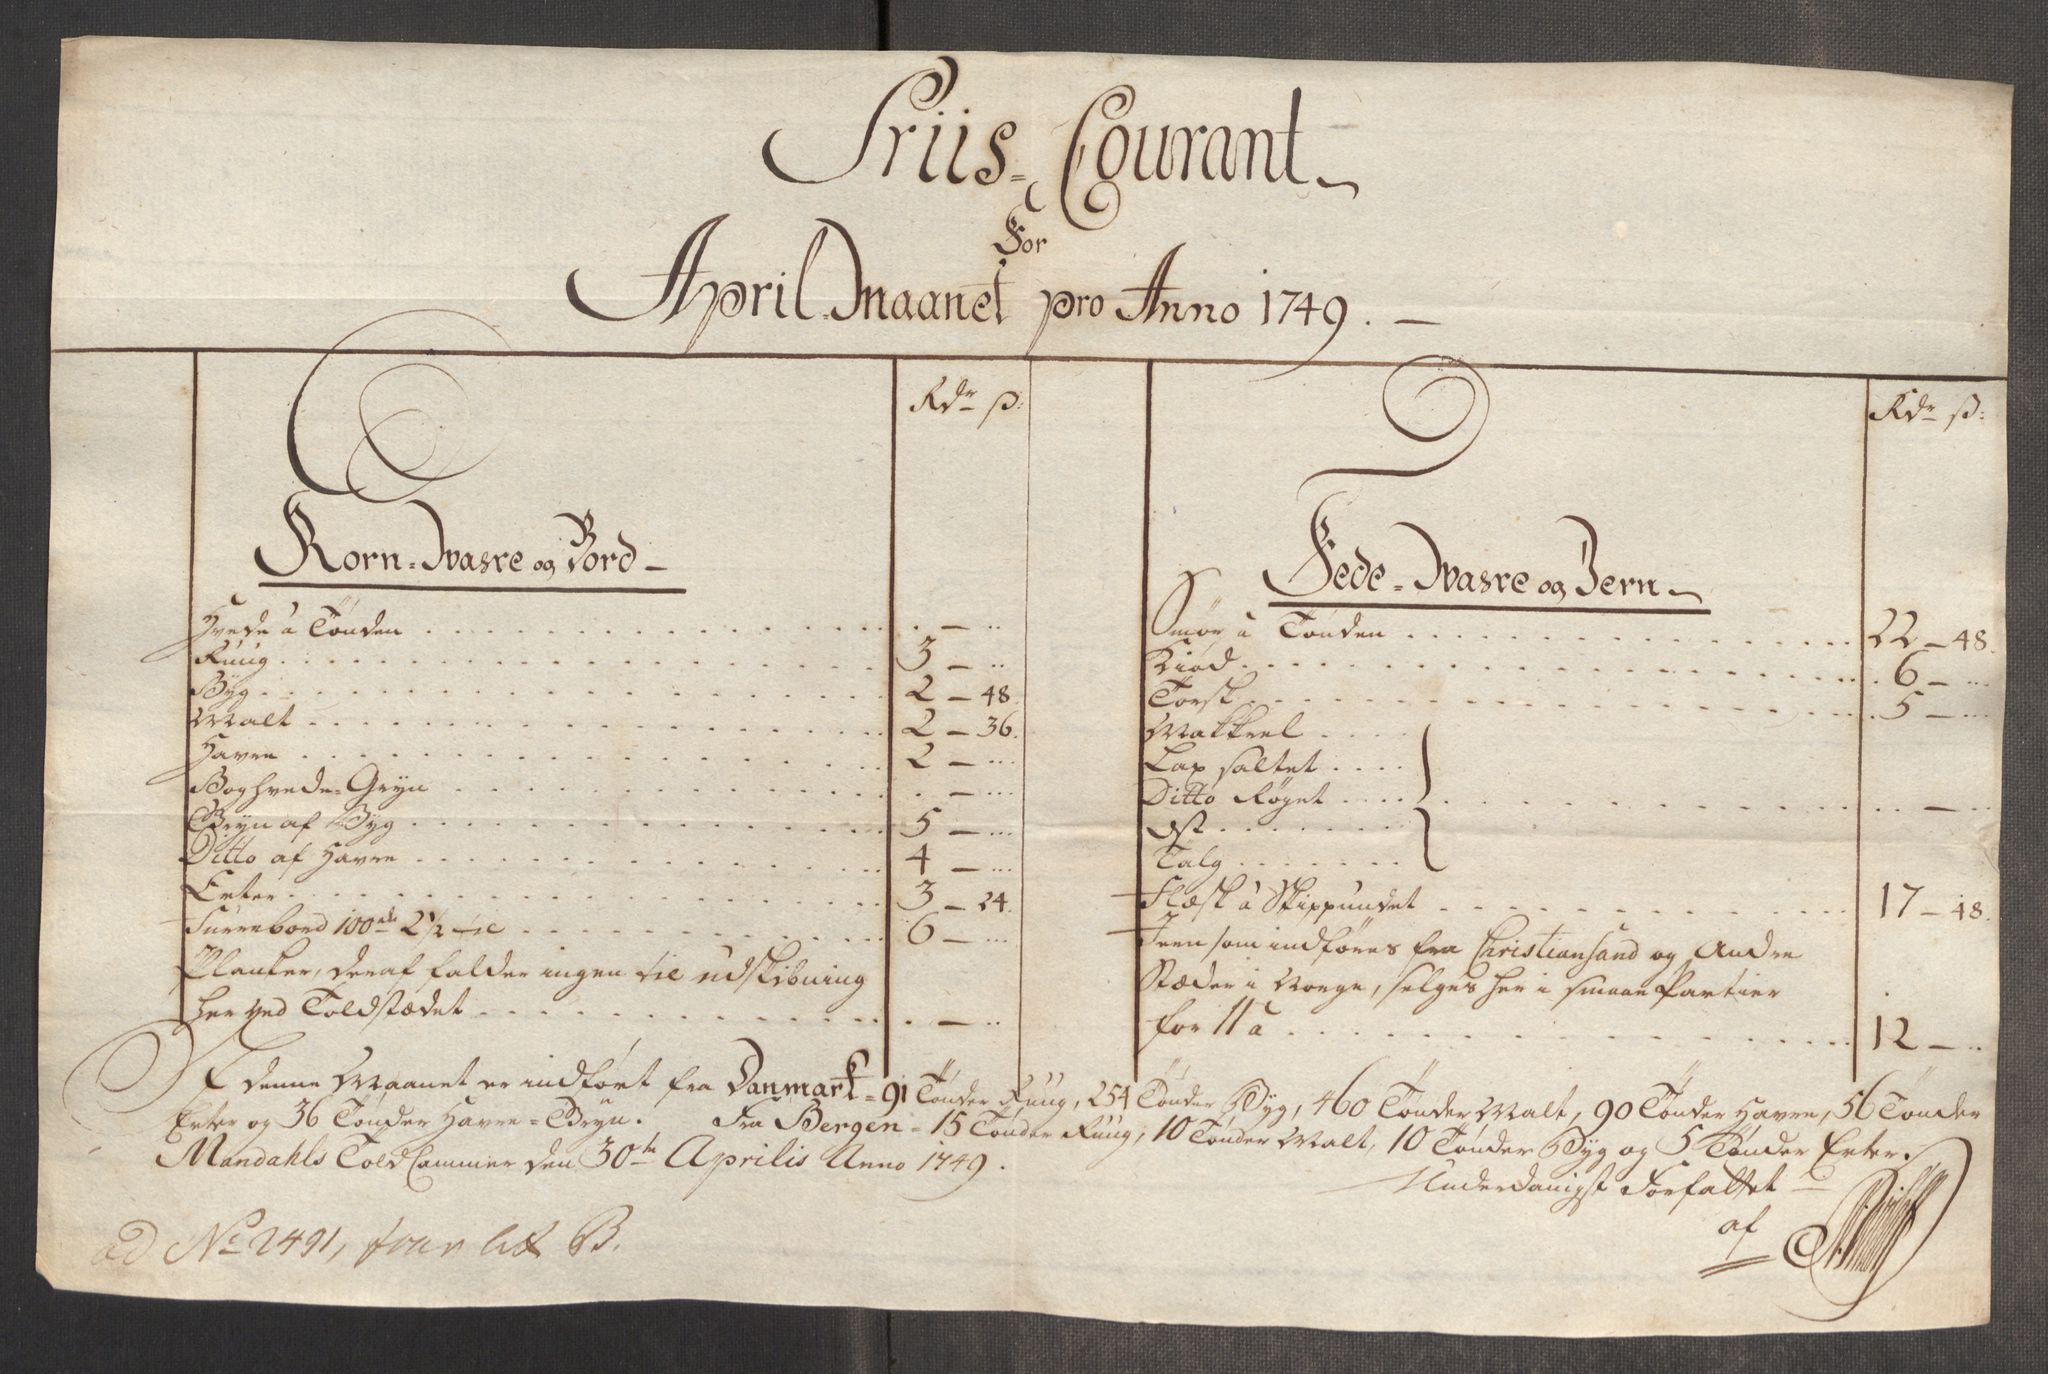 Priis-Courant
For
April Maanet pro Anno 1749.
Rdr ß:
Korn-Waare og Bord
Hvede à Tönden . — ..
Ruug 3 — ..
Byg 2 — 48.
Malt 2 — 36.
Havre 2 — ...
Boghvede-Gryn . — ...
Gryn af Byg 5 — ...
Ditto af Havre 4 — ...
Erter 3 — 24.
Furrebord 100de 2 1/2 al: 6 — ...
Planker, deraf falder ingen til udskibning
her ved Toldstædet . — ..
Rdr ß:
Fede-Waare og Jern
Smör à Tönden 22 — 48.
Kiöd 6 — ...
Torsk 5 — ...
Makkrel
Lax saltet
Ditto Röget — ..
Ost
Talg
Flæsk à Skippundet 17 — 48.
Jern som indföres fra Christiansand og Andre
Stæder i Norge, selges her i smaae Partier
for 11 à 12 — ..
I denne Maanet er indfört fra Danmark = 91 Tönder Ruug, 254 Tönder Byg, 460 Tönder Malt, 90 Tönder Havre, 56 Tönder
Erter og 36 Tönder Havre-Gryn. Fra Bergen = 15 Tönder Ruug, 10 Tönder Malt, 10 Tönder Byg og 5 Tönder Erter.
Mandahls Told Cammer den 30te Aprilis Anno 1749.
Underdanigst Forfattet
af
ad No 2491, litr B.